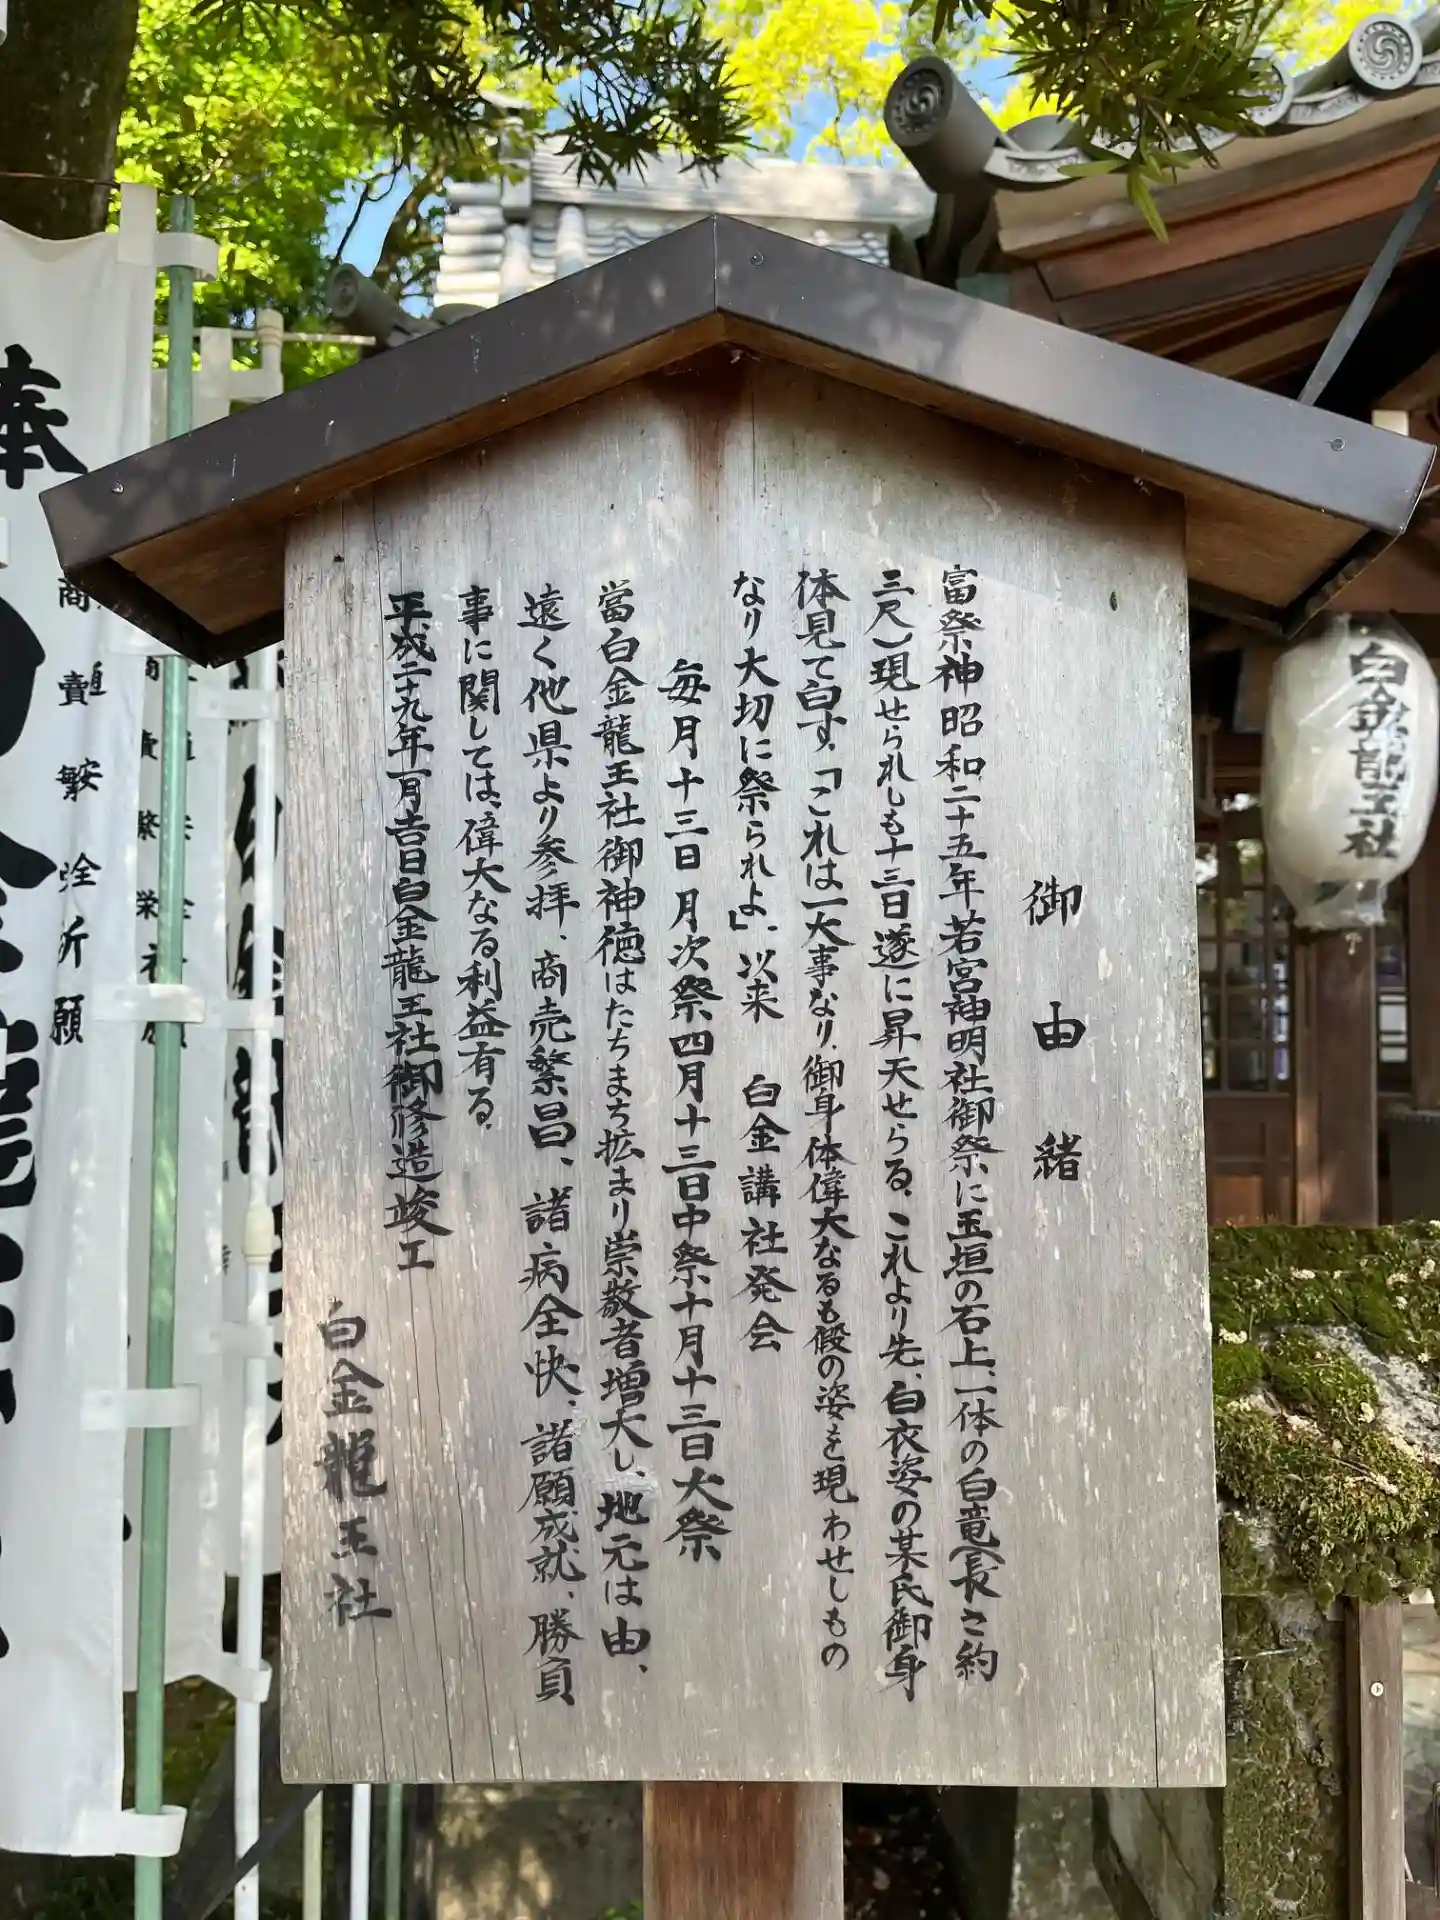 御由緒
富祭神昭和二十五年若宮神明社御祭に玉垣の石上、一体の白竜(長さ約
三尺)現せられしも十三日遂に昇天せらる、これより先、白衣姿の某氏御身
体見て白す、「これは一大事なり、御身体偉大なるも假の姿を現わせしもの
なり大切に祭られよ」、以来 白金講社発会
毎月十三日月次祭四月十三日中祭十月十三日大祭
當白金龍王社御神徳はたちまち拡まり崇敬者増大し、地元は由、
遠く他県より参拝、商売繁昌、諸病全快、諸願成就、勝負
事に関しては、偉大なる利益有る、
平成二十九年一月吉日白金龍王社御修造竣工
白金龍王社
白金龍王社
奉
商賣繁栓祈願